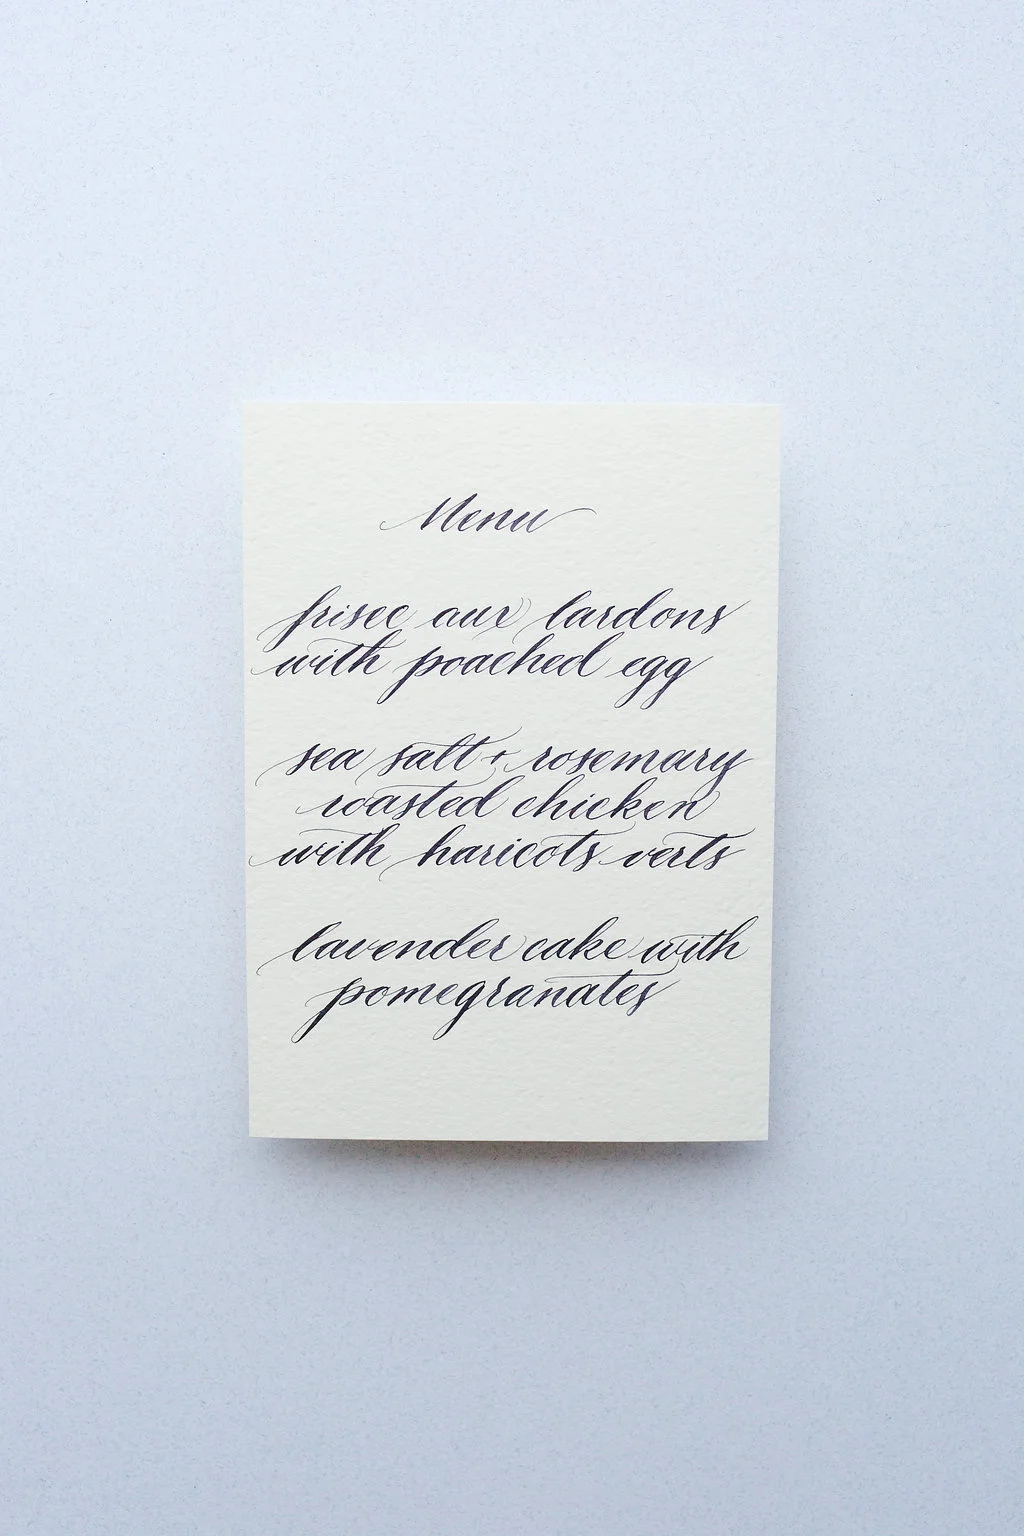 Menu
frisee aux lardons
with poached egg
sea salt + rosemary
roasted chicken
with haricots verts
lavender cake with
pomegranates